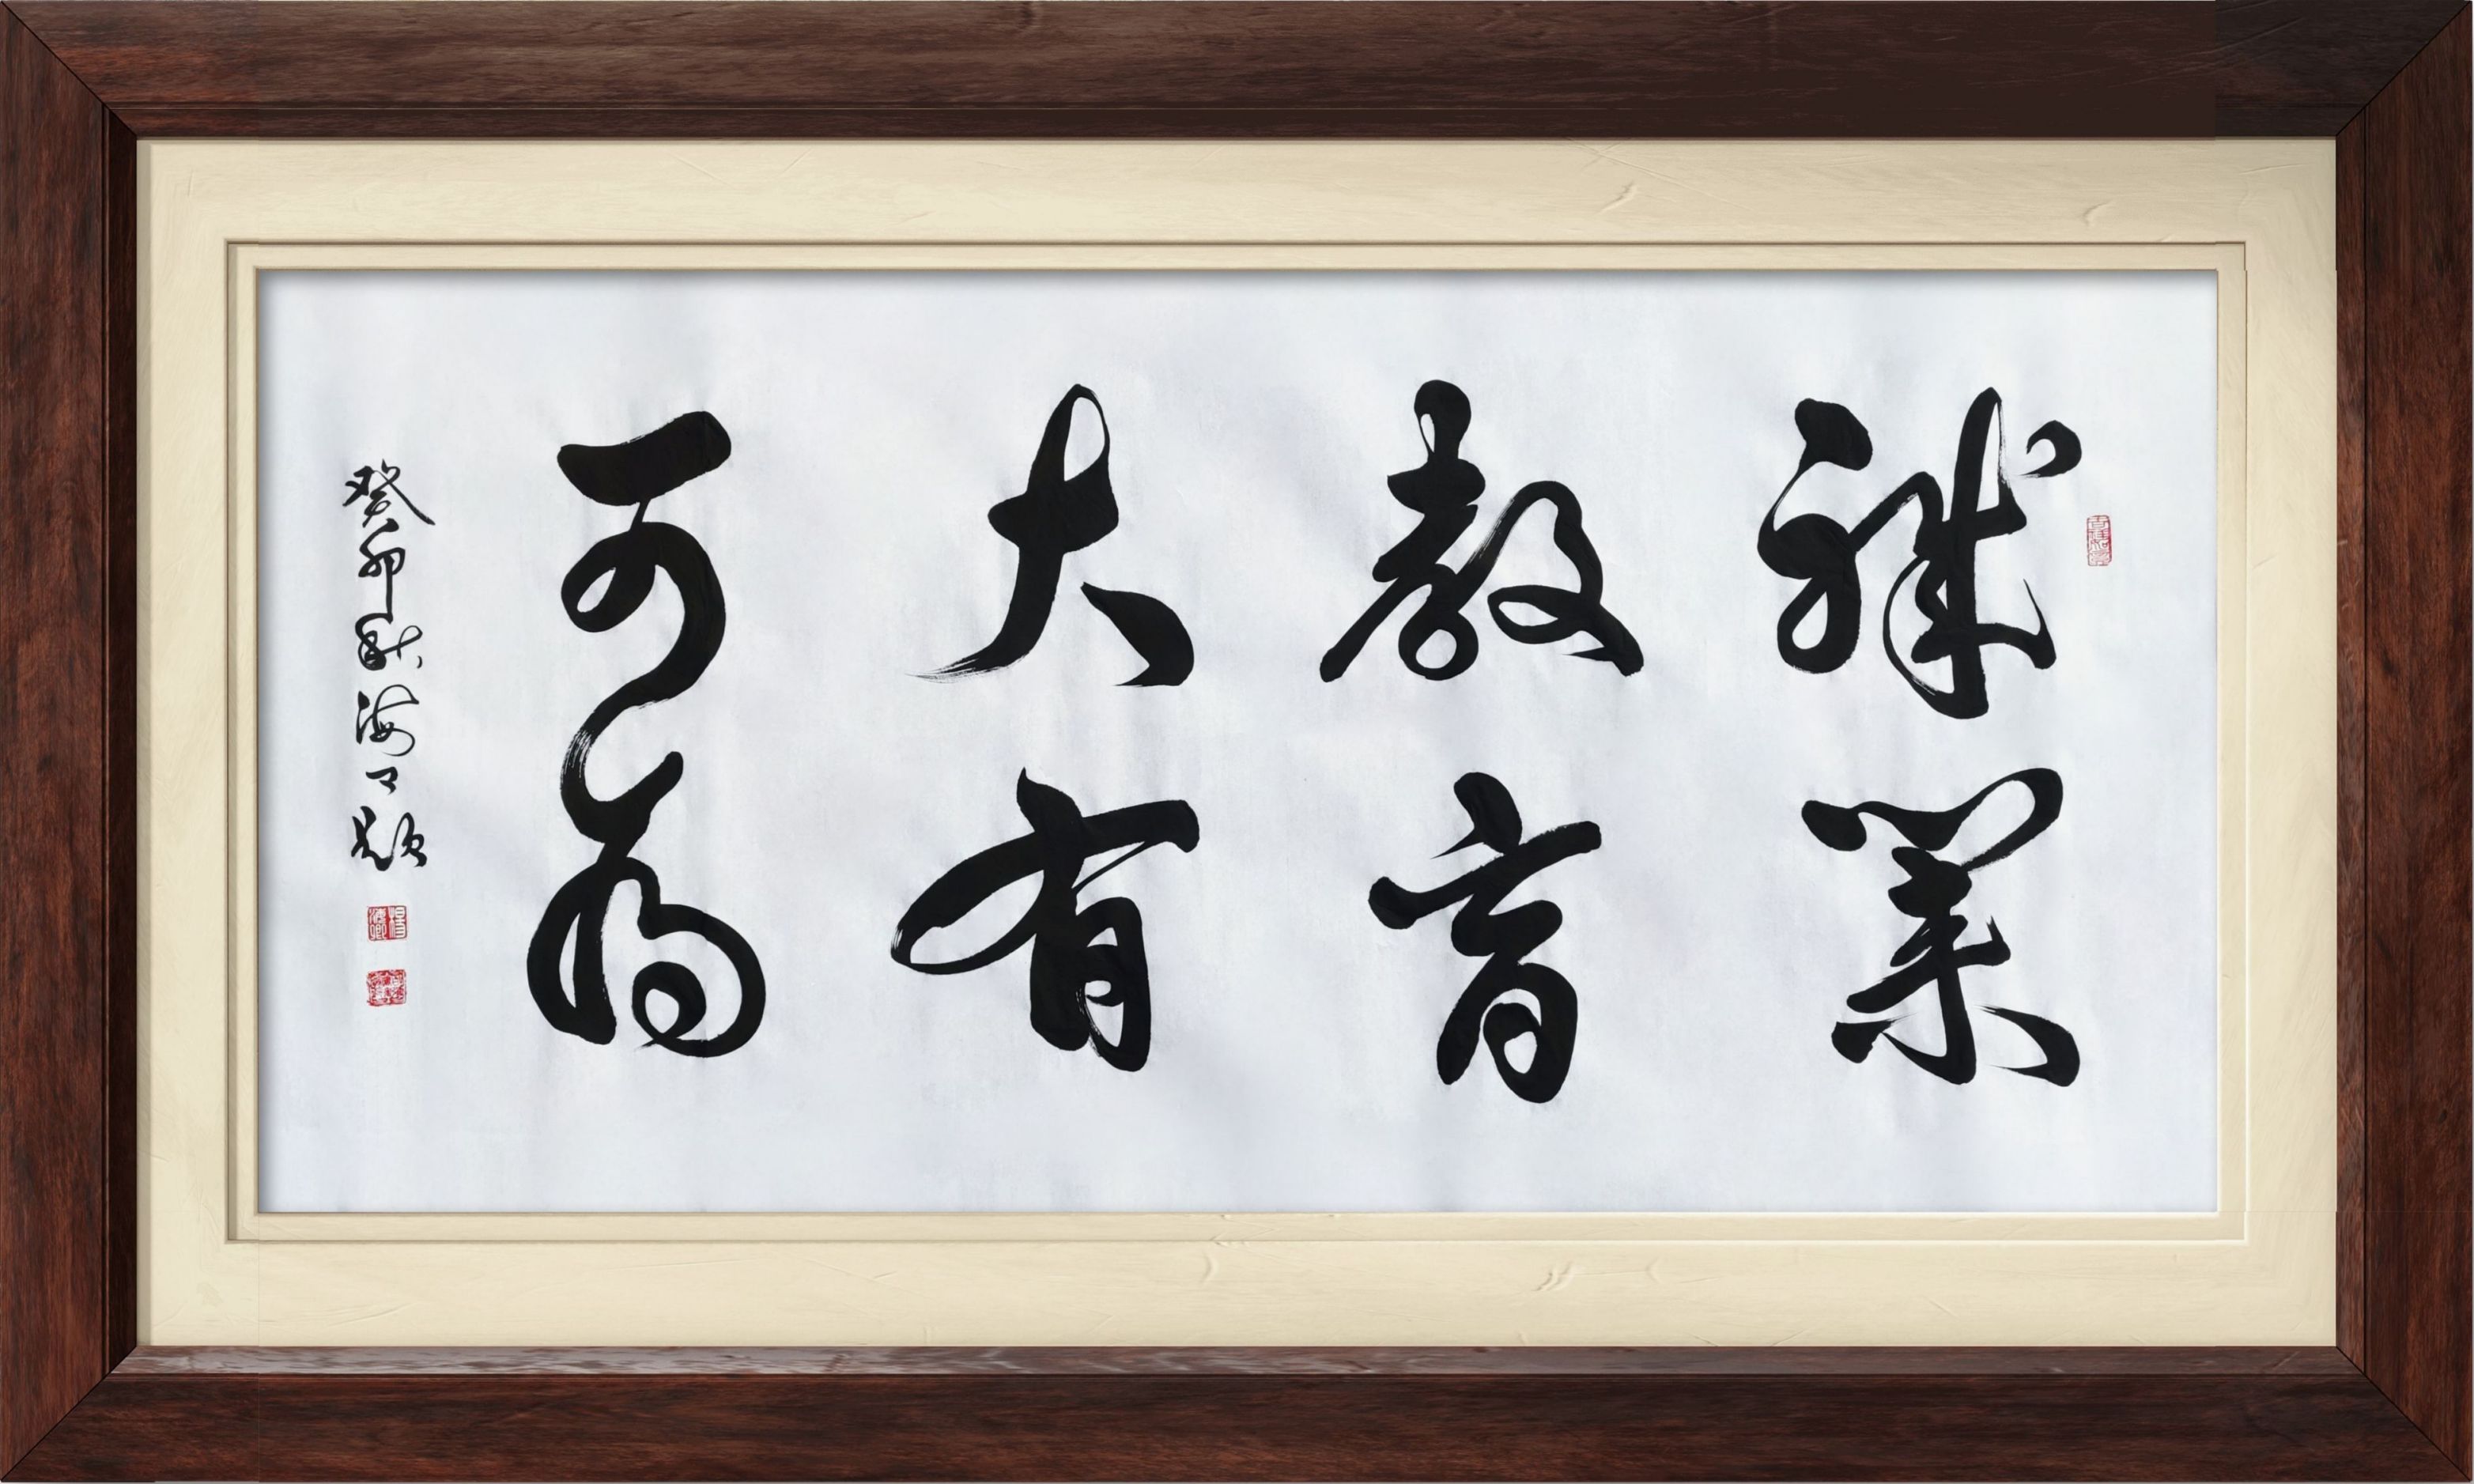 職業
教育
大有
可為
癸卯秋海云題